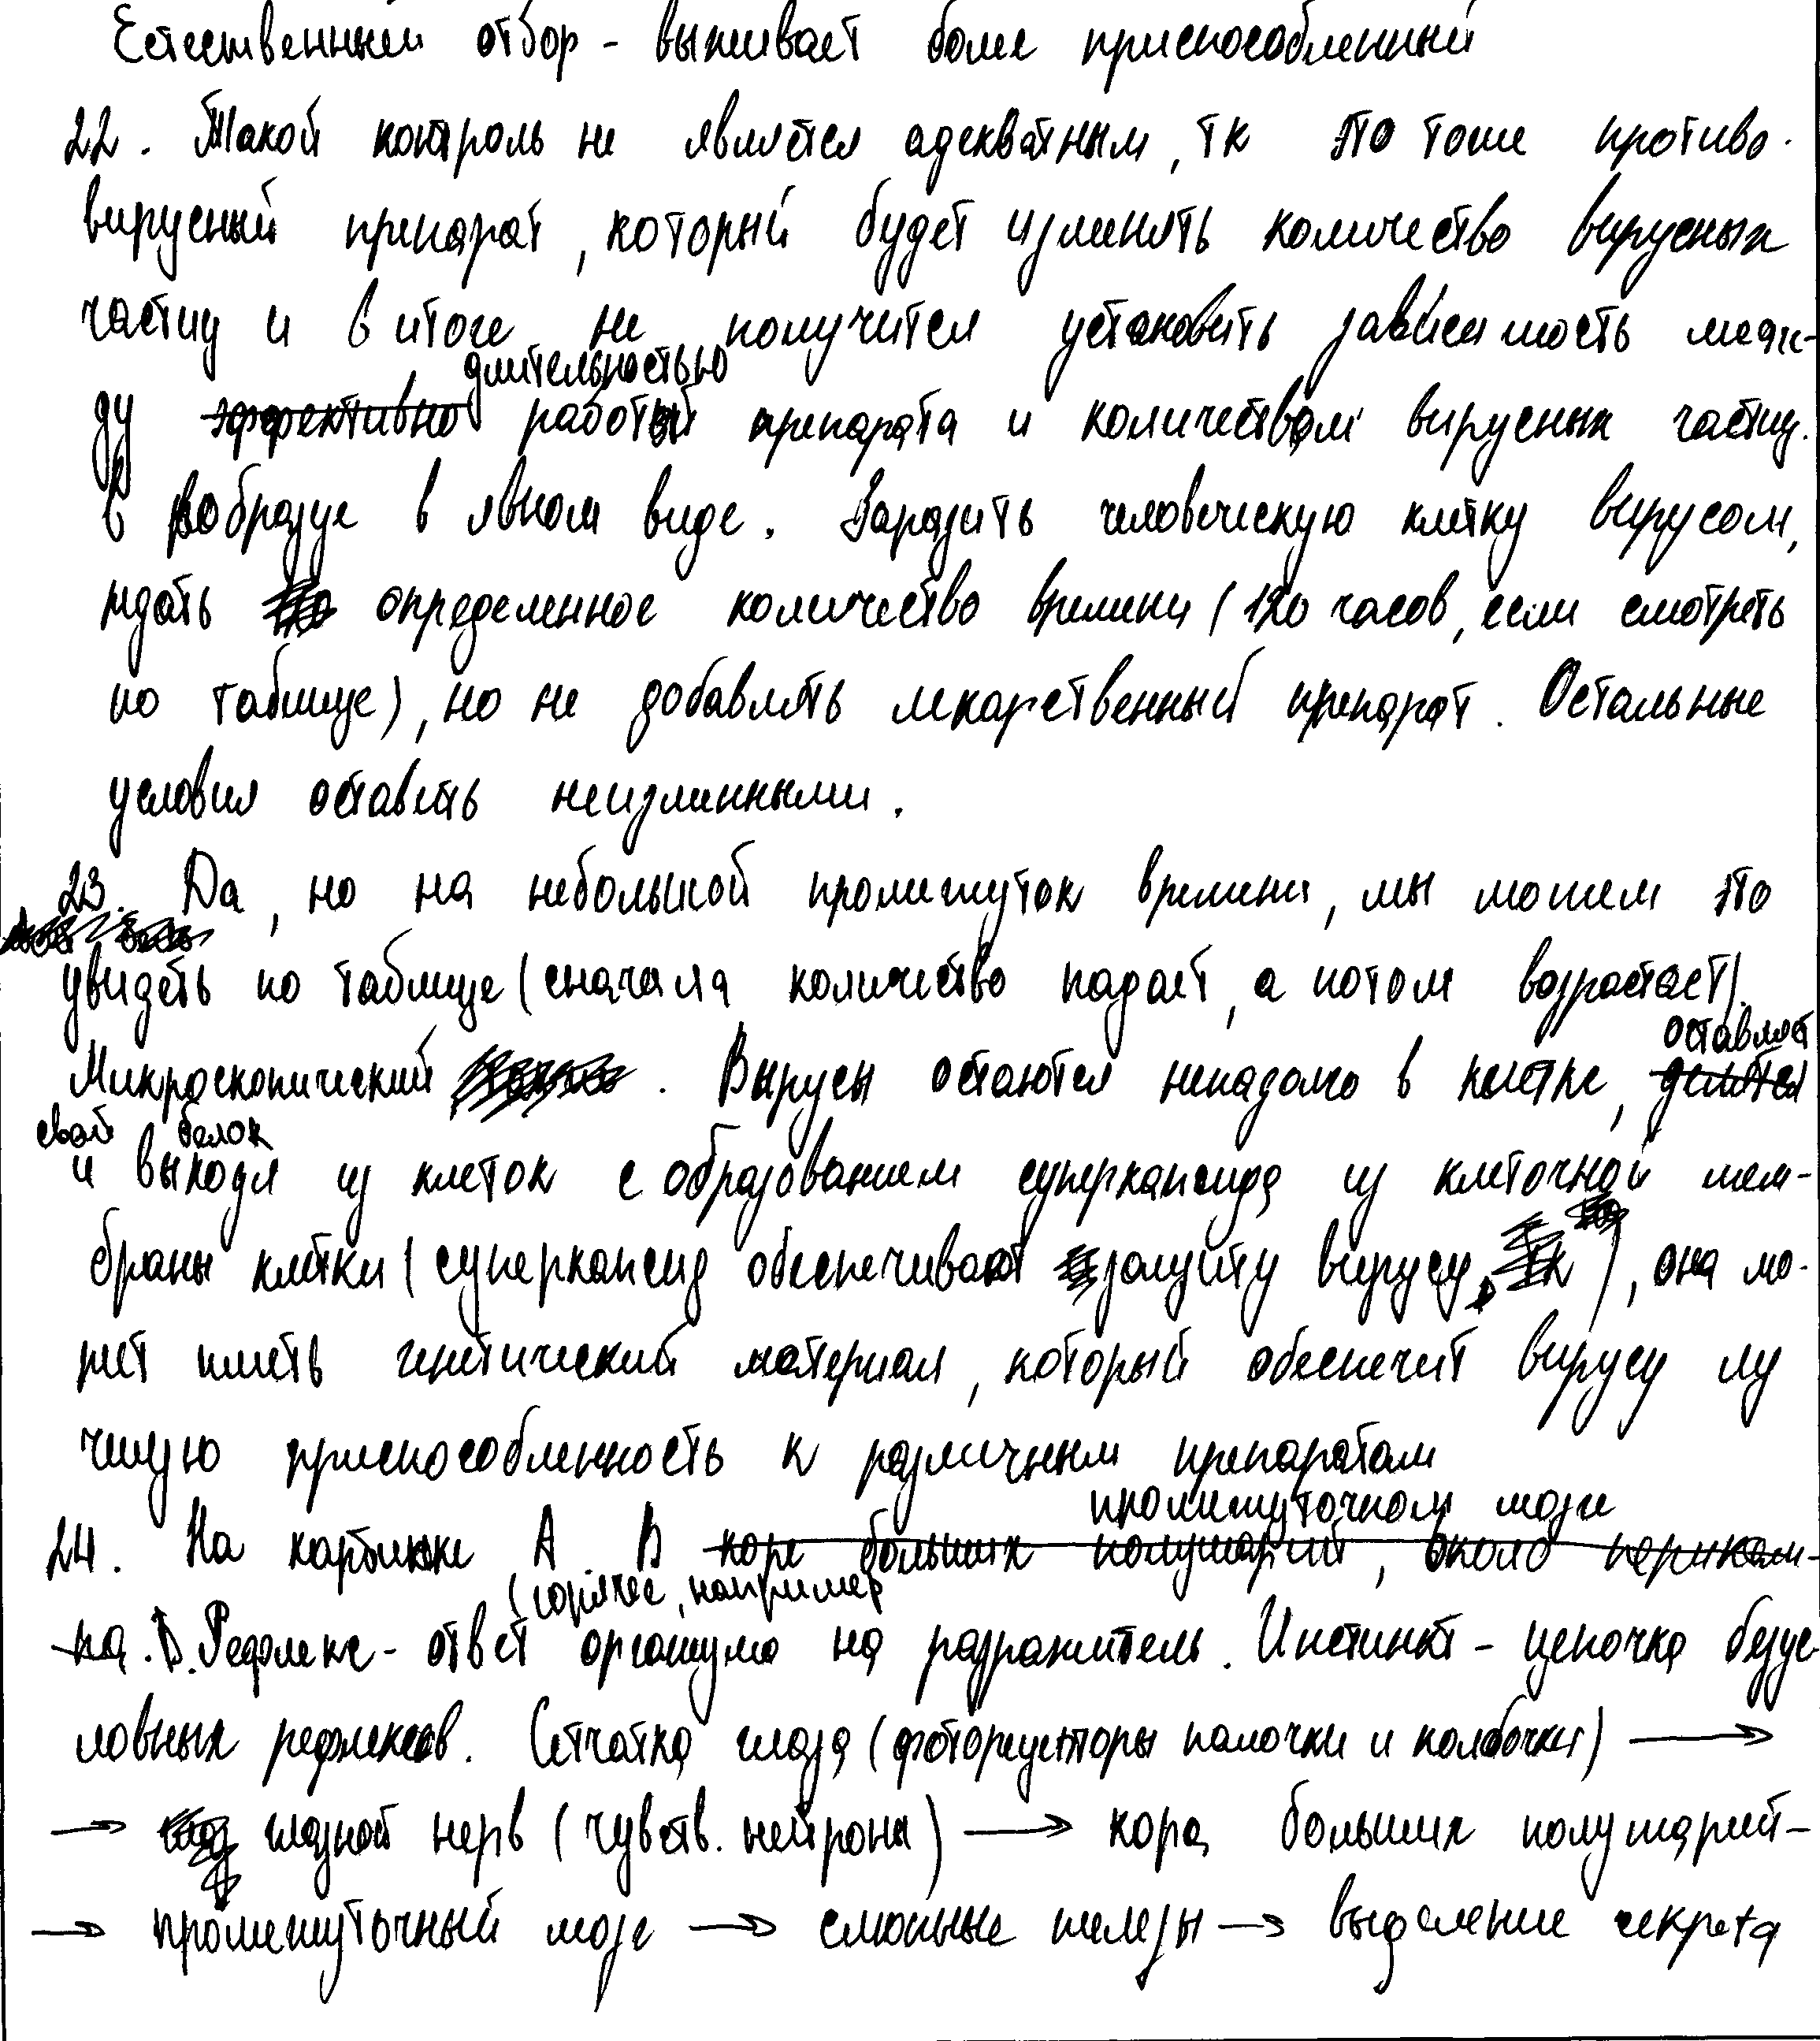 Естественный отбор - выживает более приспособленный
22. Такой контроль не является адекватным, тк это тоже противо-
вирусный препарат, который будет изменять количество вирусных
частиц и в итоге не получится установить зависимость меж-
длительностью
ду эффективно работы препарата и количеством вирусных частиц
в образце в явном виде. Заразить человеческую клетку вирусом,
ждать определенное количество времени (120 часов, если смотреть
по таблице), но не добавлять лекарственный препарат. Остальные
условия оставить неизменными.
23. Да, но на небольшой промежуток времени, мы можем это
увидеть по таблице (сначала количество падает, а потом возрастает).
оставляют
Микроскопический. Вирусы остаются ненадолго в клетке, делятся
свой белок
и выходя из клеток с образованием суперкапсида из клеточной мем-
браны клетки (суперкапсид обеспечивает защиту вирусу), она мо-
жет иметь генетический материал, который обеспечит вирусу лу
чшую приспособленность к различным препаратам
промежуточном мозге
24. На картинке А. В коре больших полушарий, около
(горячее, например
Рефлекс - ответ организма на раздражитель. Инстинкт - цепочка безус
ловных рефлексов. Сетчатка глаза (фоторецепторы палочки и колбочки) →
→ глазной нерв (чувств. нейрона) → кора больших полушарий -
→ промежуточный мозг → слюнные железы → выделение секрета